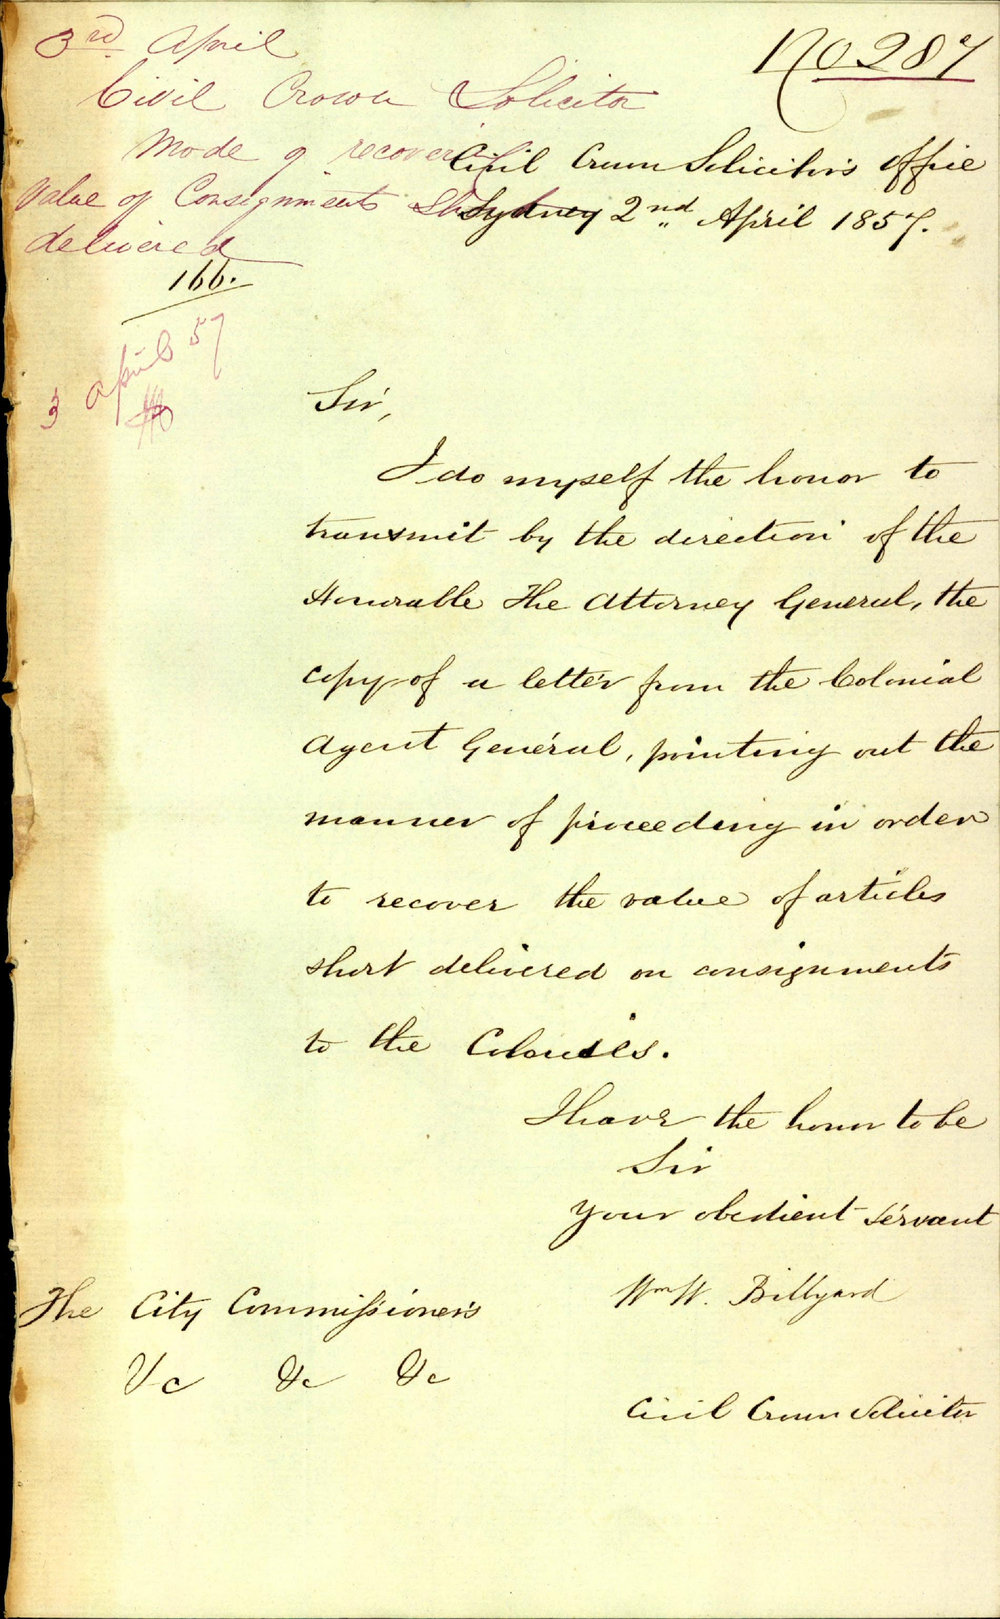 3rd April
Civil Crown Solicitor
Mode of recovering
Value of Consignments Short
delivered
166.
3 April 57
No 287
Civil Crown Solicitor's Office
Sydney 2nd April 1857.
Sir,
I do myself the honor to
transmit by the direction of the
Honorable The Attorney General, the
copy of a letter from the Colonial
Agent General, pointing out the
manner of proceeding in order
to recover the value of articles
short delivered on consignments
to the Colonies.
I have the honor to be
Sir
Your obedient servant
Wm W. Billyard
Civil Crown Solicitor
The City Commissioners
&c &c &c